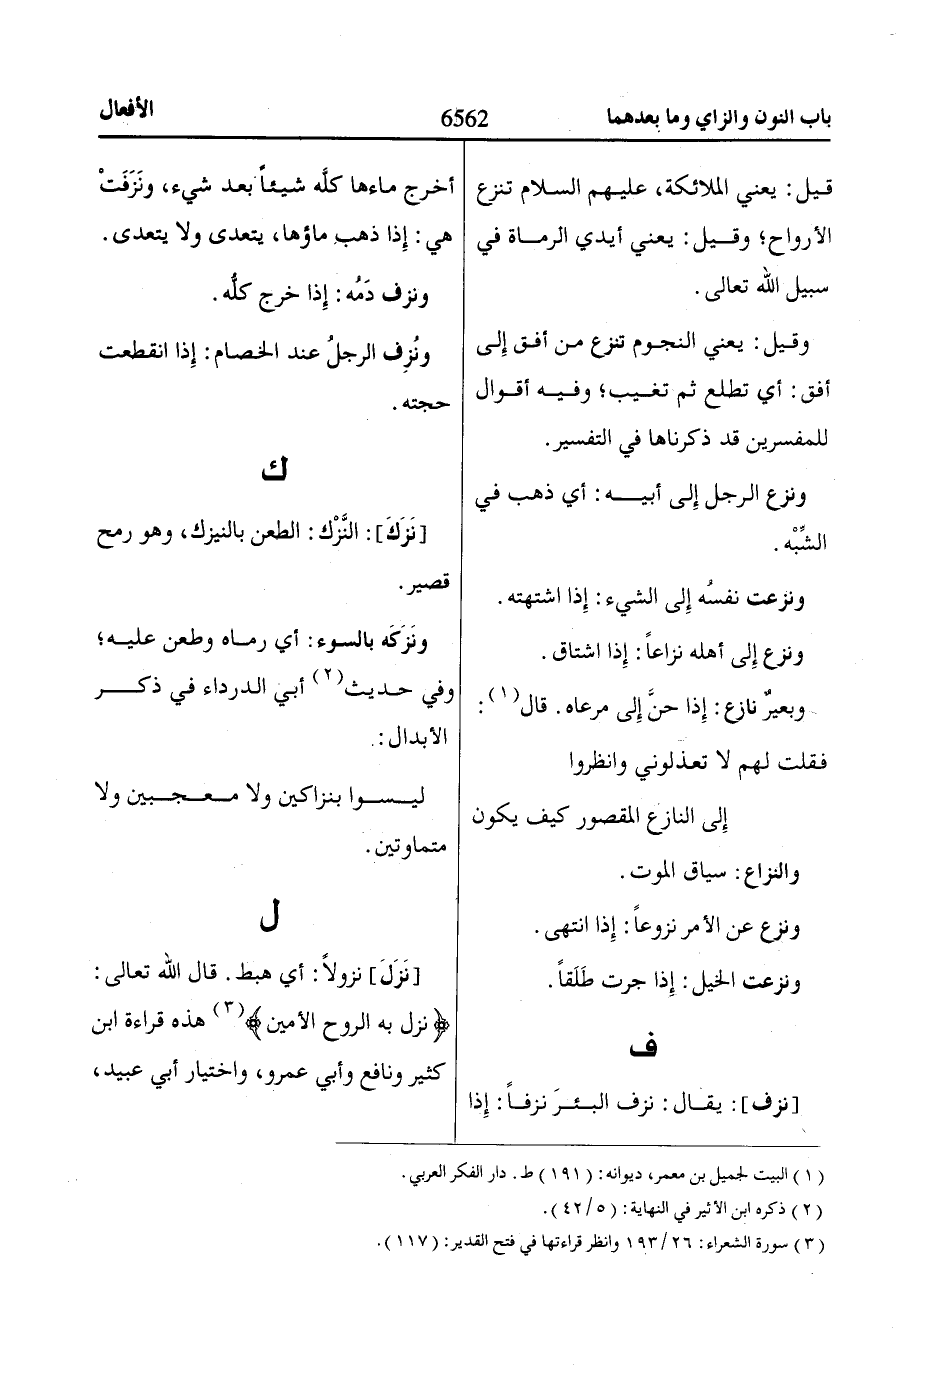 باب النون والزاي وما بعدهما
6562
الأفعال
قيل: يعني الملائكة، عليهم السلام تنزع
الأرواح؛ وقيل: يعني أيدي الرماة في
سبيل الله تعالى.
وقيل: يعني النجوم تنزع من أفق إلى
أفق: أي تطلع ثم تغيب؛ وفيه أقوال
للمفسرين قد ذكرناها في التفسير.
ونزع الرجل إلى أبيه: أي ذهب في
الشَّبْه.
ونزعت نفسُه إلى الشيء: إذا اشتهته.
ونزع إلى أهله نزاعاً: إذا اشتاق.
وبعيرٌ نازع: إذا حنَّ إلى مرعاه. قال(١):
فقلت لهم لا تعذلوني وانظروا
إلى النازع المقصور كيف يكون
والنزاع: سياق الموت.
ونزع عن الأمر نزوعاً: إذا انتهى.
ونزعت الخيل: إذا جرت طَلَقاً.
ف
[نزف]: يقال: نزف البئرَ نزفاً: إذا
أخرج ماءها كلَّه شيئاً بعد شيء، ونَزَفَتْ
هي: إذا ذهب ماؤها، يتعدى ولا يتعدى.
ونزف دَمُه: إذا خرج كلُّه.
ونُزِف الرجلُ عند الخصام: إذا انقطعت
حجته.
ك
[نَزَكَ]: النَّزْك: الطعن بالنيزك، وهو رمح
قصير.
ونَزَكَه بالسوء: أي رماه وطعن عليه؛
وفي حديث(٢) أبي الدرداء في ذكر
الأبدال:
ليسوا بنزاكين ولا معجبين ولا
متماوتين.
ل
[نَزَلَ] نزولاً: أي هبط. قال الله تعالى:
﴿نزل به الروح الأمين﴾(٣) هذه قراءة ابن
كثير ونافع وأبي عمرو، واختيار أبي عبيد،
(١) البيت لجميل بن معمر، ديوانه: (١٩١) ط. دار الفكر العربي.
(٢) ذكره ابن الأثير في النهاية: (٤٢/٥).
(٣) سورة الشعراء: ١٩٣/٢٦ وانظر قراءتها في فتح القدير: (١١٧).